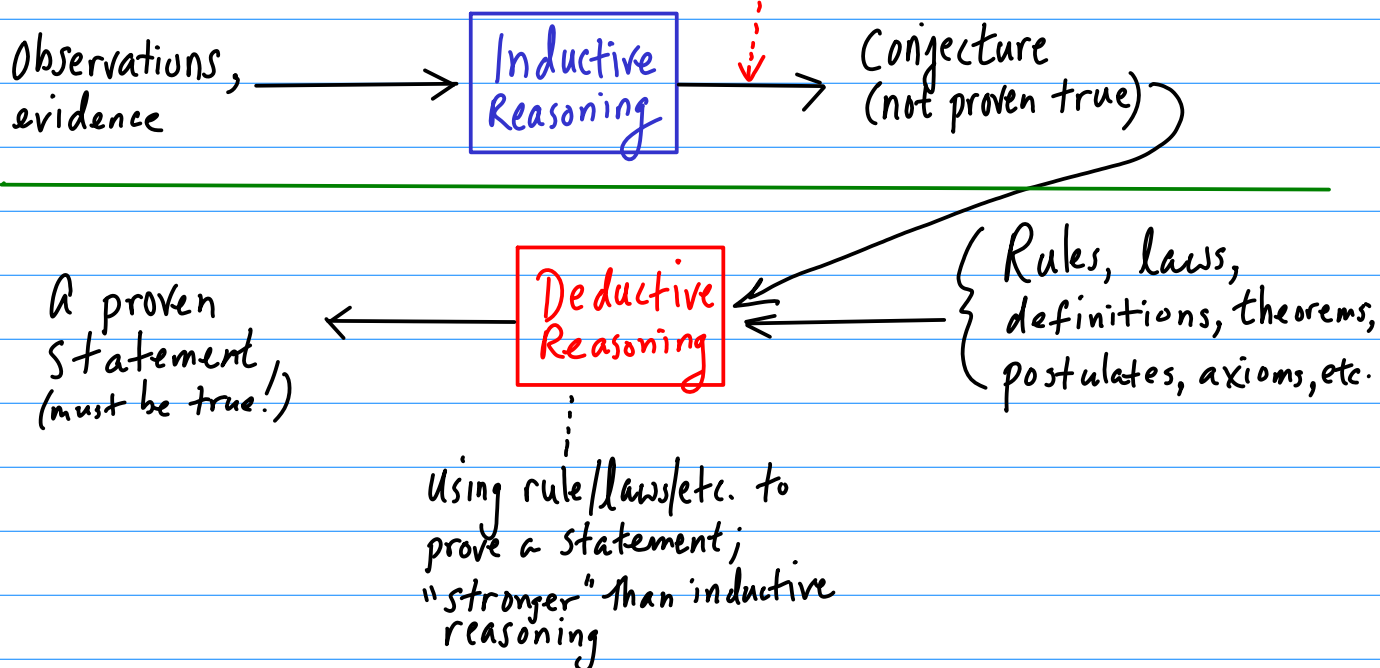 Observations,
evidence
Inductive
Reasoning
Conjecture
(not proven true)
A proven
statement
(must be true!)
Deductive
Reasoning
Rules, laws,
definitions, theorems,
postulates, axioms, etc.
Using rule/laws/etc. to
prove a statement;
"stronger" than inductive
reasoning